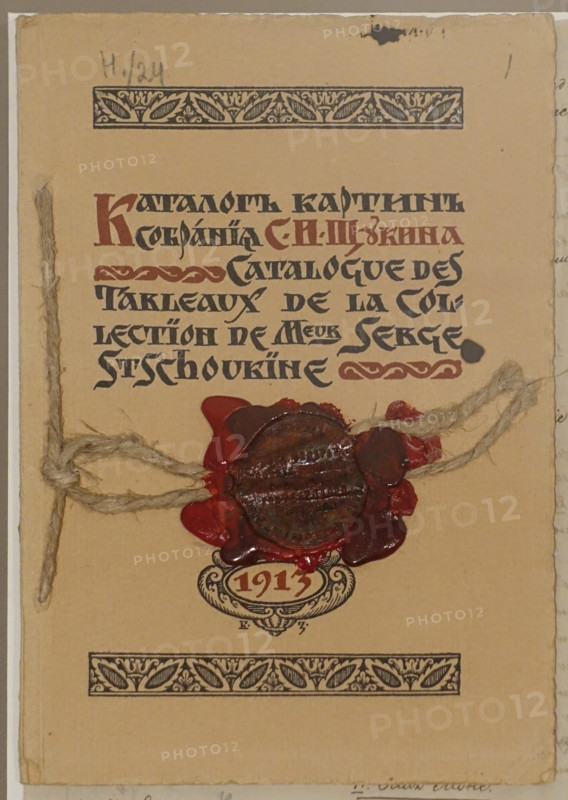 Н./24
Каталогъ картинъ
собрáнїѧ С·И·Щꙋкина
Catalogue des
Tableaux de la Col-
lection de Meur Serge
Stschoukine
1913
PHOTO12